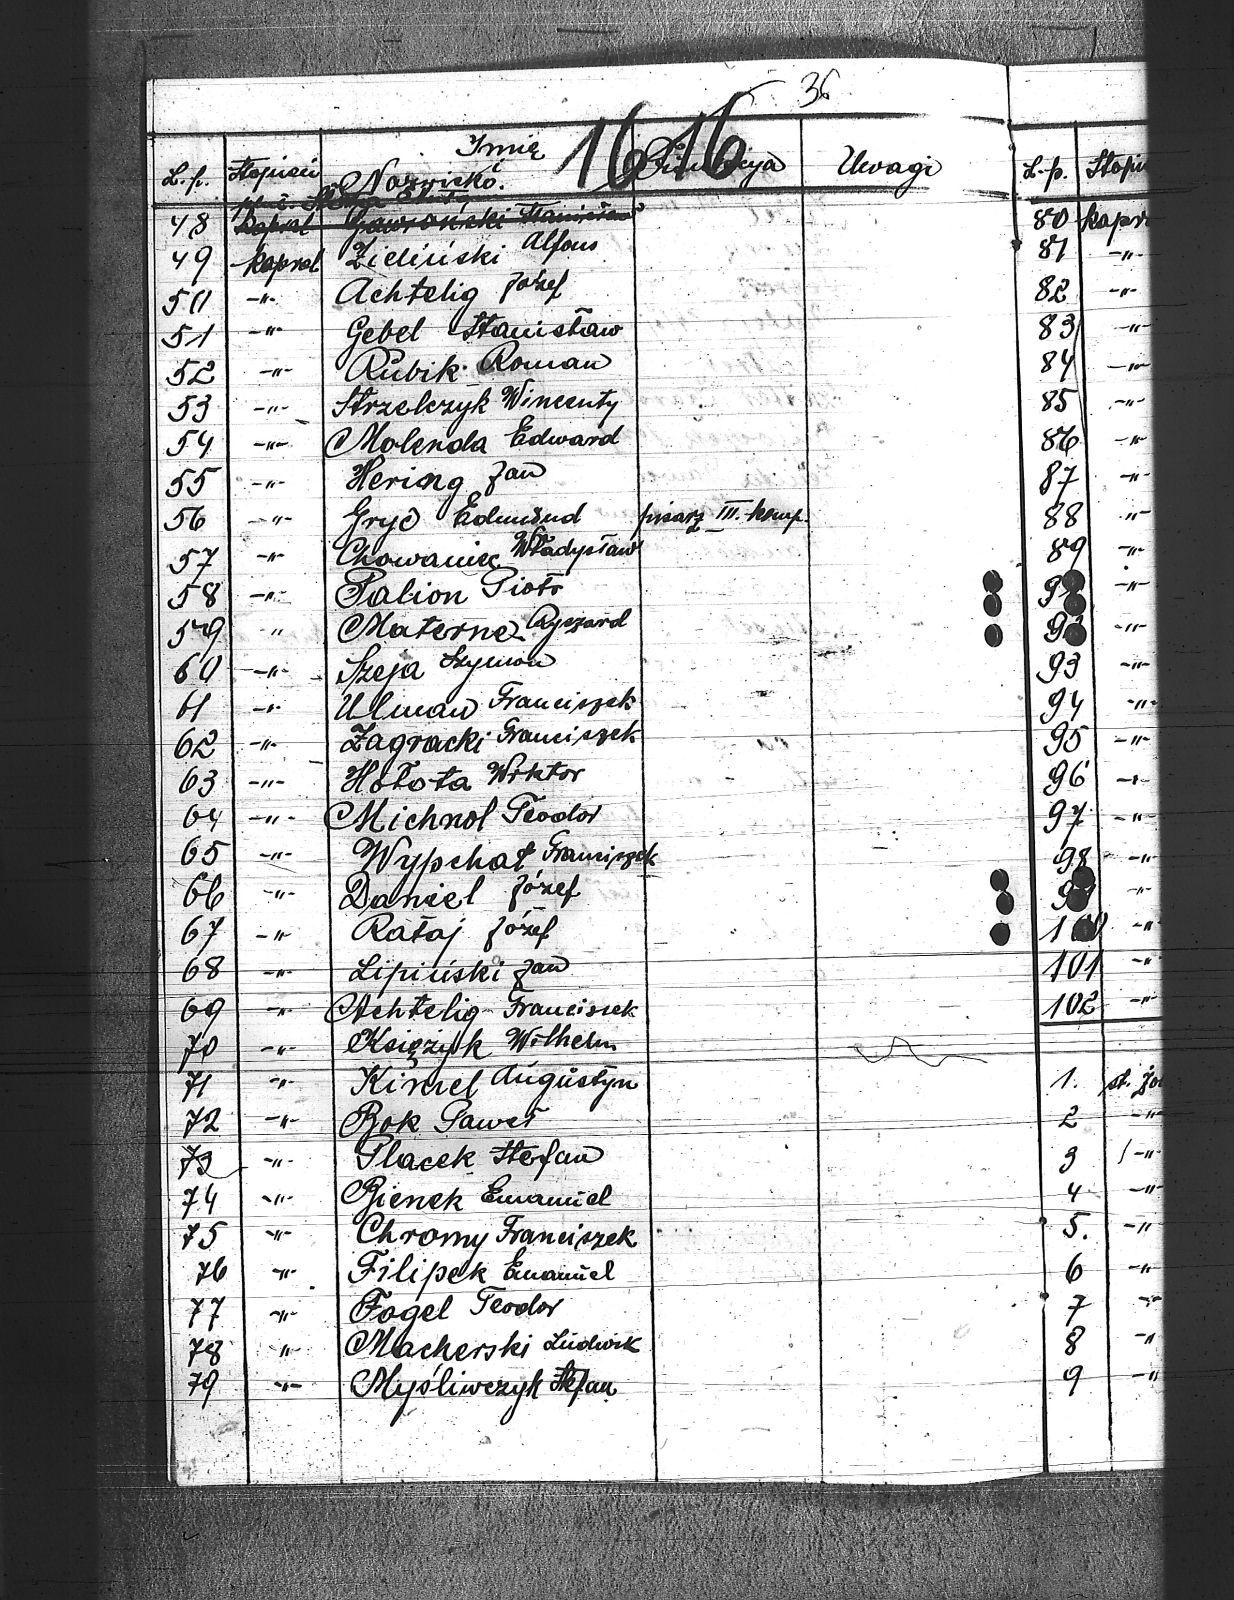 36
16 16
L.p. Stopień Imię Nazwisko. Uwagi
48 Kapral Gawroński Stanisław
49 kapral Zieliński Alfons
50 -"- Achtelig Józef
51 -"- Gebel Stanisław
52 -"- Rubik Roman
53 -"- Strzelczyk Wincenty
54 -"- Molenda Edward
55 -"- Hering Jan
56 -"- Gryc Edmund pisarz III. komp.
57 -"- Chowaniec Władysław
58 -"- Palion Piotr
59 " Materne Ryszard
60 -"- Szeja Szymon
61 -"- Ulman Franciszek
62 -"- Zagracki Franciszek
63 -"- Hołota Wiktor
64 -"- Michnol Teodor
65 -"- Wypchał Franciszek
66 -"- Daniel Józef
67 -"- Rataj Józef
68 -"- Lipiński Jan
69 -"- Achtelig Franciszek
70 -"- Księżyk Wilhelm
71 -"- Kimel Augustyn
72 -"- Bok Paweł
73 -"- Placek Stefan
74 -"- Bienek Emanuel
75 -"- Chromy Franciszek
76 -"- Filipek Emanuel
77 -"- Fogel Teodor
78 -"- Macherski Ludwik
79 -"- Myśliwczyk Stefan
L.p. Stopi
80 kapr
81 -"-
82 -"-
83 -"-
84 -"-
85 -"-
86 -"-
87 -"-
88 -"-
89 -"-
93 -"-
94 -"-
95 -"-
96 -"-
97 -"-
98 -"-
100 -"-
101 -"-
102 -"-
1. st.
2 -"-
3 -"-
4 -"-
5. -"-
6 -"-
7 -"-
8 -"-
9 -"-